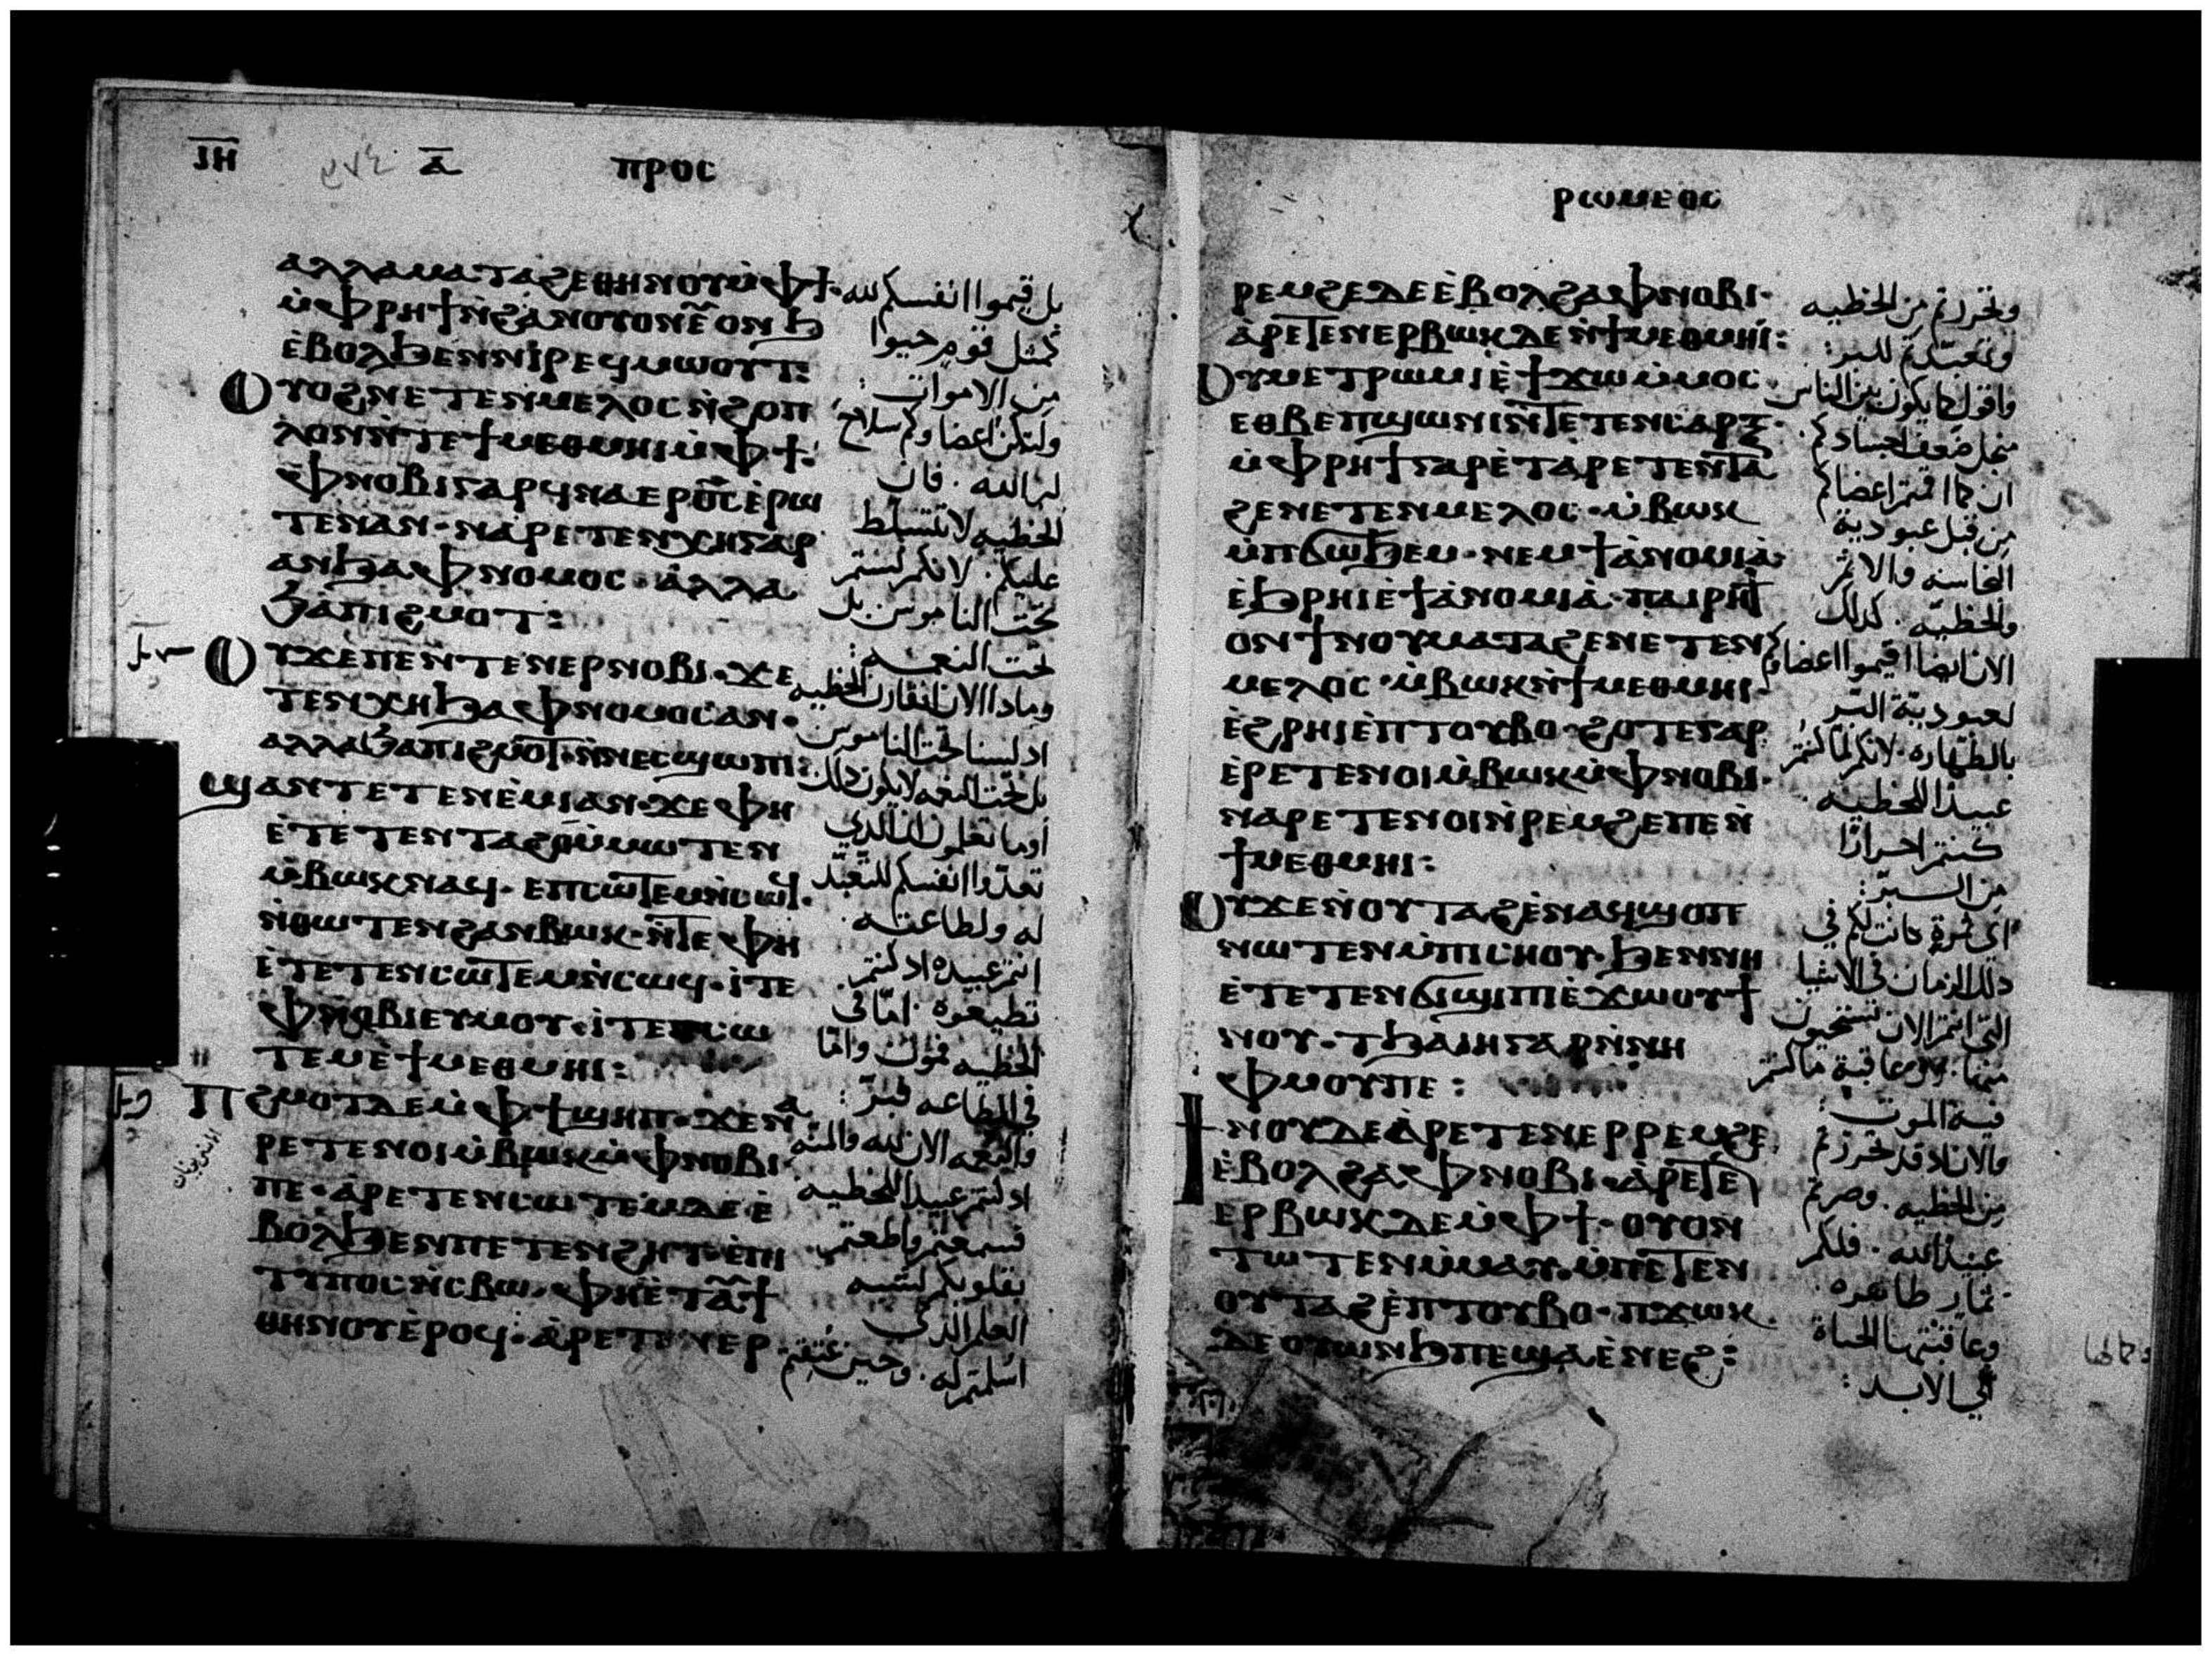 ⲓⲏ ⲁ ⲡⲣⲟⲥ
ⲁⲗⲗⲁ ⲙⲁⲧⲁϩⲉ ⲑⲏⲛⲟⲩ ⲙ̀ⲫϯ·
ⲙ̀ⲫⲣⲏϯ ⲛ̀ϩⲁⲛⲟⲩⲟⲛ ⲉⲩⲟⲛϧ
ⲉ̀ⲃⲟⲗϧⲉⲛ ⲛⲓⲣⲉϥⲙⲱⲟⲩⲧ:
ⲟⲩⲟϩ ⲛⲉⲧⲉⲛⲙⲉⲗⲟⲥ ⲛ̀ϩⲟⲡ
ⲗⲟⲛ ⲛ̀ⲧⲉ ϯⲙⲉⲑⲙⲏⲓ ⲙ̀ⲫϯ:
ⲫⲛⲟⲃⲓ ⲅⲁⲣ ϥⲛⲁⲉⲣⲟ̅ⲥ̅ ⲉ̀ⲣⲱ
ⲧⲉⲛ ⲁⲛ· ⲛⲁⲣⲉⲧⲉⲛⲭⲏ ⲅⲁⲣ
ⲁⲛ ϧⲁ ⲫⲛⲟⲙⲟⲥ· ⲁⲗⲗⲁ
ϧⲁ ⲡⲓϩⲙⲟⲧ:
ⲟⲩ ϫⲉ ⲡⲉ ⲛ̀ⲧⲉⲛⲉⲣⲛⲟⲃⲓ· ϫⲉ
ⲧⲉⲛⲭⲏ ϧⲁ ⲫⲛⲟⲙⲟⲥ ⲁⲛ·
ⲁⲗⲗⲁ ϧⲁ ⲡⲓϩⲙⲟⲧ· ⲛ̀ⲛⲉⲥϣⲱⲡⲓ:
ϣⲁⲛ ⲧⲉⲧⲉⲛⲉ̀ⲙⲓ ⲁⲛ· ϫⲉ ⲫⲏ
ⲉ̀ⲧⲉⲧⲉⲛⲧⲁϩⲟ ⲙ̀ⲙⲱⲧⲉⲛ
ⲙ̀ⲃⲱⲕ ⲛⲁϥ· ⲉⲡⲥⲱⲧⲉⲙ ⲛ̀ⲥⲱϥ·
ⲛ̀ⲑⲱⲧⲉⲛ ϩⲁⲛⲃⲱⲕ· ⲛ̀ⲧⲉ ⲫⲏ
ⲉ̀ⲧⲉⲧⲉⲛⲥⲱⲧⲉⲙ ⲛ̀ⲥⲱϥ· ⲓⲧⲉ
ⲫⲛⲟⲃⲓ ⲉⲩⲙⲟⲩ· ⲓⲧⲉ ⲡⲥⲱ
ⲧⲉⲙ ⲉ̀ϯⲙⲉⲑⲙⲏⲓ:
ⲡϩⲙⲟⲧ ⲇⲉ ⲙ̀ⲫϯ ϣⲏⲡ· ϫⲉ ⲛⲁ
ⲣⲉⲧⲉⲛⲟⲓ ⲙ̀ⲃⲱⲕ ⲙ̀ⲫⲛⲟⲃⲓ
ⲡⲉ· ⲁ̀ⲣⲉⲧⲉⲛⲥⲱⲧⲉⲙ ⲇⲉ ⲉ̀
ⲃⲟⲗϧⲉⲛ ⲡⲉⲧⲉⲛϩⲏⲧ ⲉ̀ⲡⲓ
ⲧⲩⲡⲟⲥ ⲛ̀ⲥⲃⲱ· ⲫⲏ ⲉ̀ⲧⲁⲩϯ
ⲑⲏⲛⲟⲩ ⲉ̀ⲣⲟϥ· ⲁ̀ⲣⲉⲧⲉⲛⲉⲣ
بل قيموا انفسكم لله
كمثل قوم حيوا
من الاموات:
ولتكن اعضاوكم سلاح
لبر الله. فان
الخطيه لا تتسلط
عليكم. لانكم لستم
تحت الناموس بل
تحت النعمه:
وماذا الان انقارف الخطيه
اذ لسنا تحت الناموس
بل تحت النعمه لا يكون ذلك
اوما تعلمون ان الذي
تعدّوا انفسكم للتعبّد
له ولطاعته
انتم عبيده اذ كنتم
تطيعوه. امّا في
الخطيه فموت وامّا
في الطاعه فبرّ:
والنعمه الان لله والمنه
اذ كنتم عبيدا للخطيه
فسمعتم واطعتم
بقلوبكم لشبه
العلم الذي
اسلمتم له. وحين عتقتم
ⲣⲱⲙⲉⲟⲥ
ⲣⲉⲙϩⲉ ⲇⲉ ⲉ̀ⲃⲟⲗϩⲁ ⲫⲛⲟⲃⲓ·
ⲁ̀ⲣⲉⲧⲉⲛⲉⲣⲃⲱⲕ ⲇⲉ ⲛ̀ϯⲙⲉⲑⲙⲏⲓ:
ⲟⲩⲙⲉⲧⲣⲱⲙⲓ ⲉ̀ϯϫⲱ ⲙ̀ⲙⲟⲥ·
ⲉⲑⲃⲉ ⲡϣⲱⲛⲓ ⲛ̀ⲧⲉ ⲧⲉⲛⲥⲁⲣⲝ·
ⲙ̀ⲫⲣⲏϯ ⲅⲁⲣ ⲉ̀ⲧⲁⲣⲉⲧⲉⲛⲧⲁ
ϩⲉ ⲛⲉⲧⲉⲛⲙⲉⲗⲟⲥ· ⲙ̀ⲃⲱⲕ
ⲙ̀ⲡϭⲱϧⲉⲙ· ⲛⲉⲙ ϯⲁⲛⲟⲙⲓⲁ
ⲉ̀ϧⲣⲏⲓ ⲉ̀ϯⲁ̀ⲛⲟⲙⲓⲁ· ⲡⲁⲓⲣⲏϯ
ⲟⲛ ϯⲛⲟⲩ ⲙⲁⲧⲁϩⲉ ⲛⲉⲧⲉⲛ
ⲙⲉⲗⲟⲥ· ⲙ̀ⲃⲱⲕ ⲛ̀ϯⲙⲉⲑⲙⲏⲓ·
ⲉ̀ϩⲣⲏⲓ ⲉ̀ⲡⲧⲟⲩⲃⲟ· ϩⲟⲧⲉ ⲅⲁⲣ
ⲉ̀ⲣⲉⲧⲉⲛⲟⲓ ⲙ̀ⲃⲱⲕ ⲙ̀ⲫⲛⲟⲃⲓ·
ⲛⲁⲣⲉⲧⲉⲛⲟⲓ ⲛ̀ⲣⲉⲙϩⲉ ⲡⲉ ⲛ̀
ϯⲙⲉⲑⲙⲏⲓ:
ⲟⲩ ϫⲉ ⲛ̀ⲟⲩⲧⲁϩ ⲉ̀ⲛⲁϥϣⲟⲡ
ⲛⲱⲧⲉⲛ ⲙ̀ⲡⲓⲥⲏⲟⲩ· ϧⲉⲛ ⲛⲏ
ⲉ̀ⲧⲉⲧⲉⲛϭⲓϣⲓⲡⲓ ⲉ̀ϫⲱⲟⲩ ϯ
ⲛⲟⲩ· ⲧϧⲁⲏ ⲅⲁⲣ ⲛ̀ⲛⲏ
ⲫⲙⲟⲩ ⲡⲉ:
ϯⲛⲟⲩ ⲇⲉ ⲁ̀ⲣⲉⲧⲉⲛⲉⲣⲣⲉⲙϩⲉ
ⲉ̀ⲃⲟⲗϩⲁ ⲫⲛⲟⲃⲓ· ⲁ̀ⲣⲉⲧⲉⲛ
ⲉⲣⲃⲱⲕ ⲇⲉ ⲙ̀ⲫϯ· ⲟⲩⲟⲛ
ⲧⲱⲧⲉⲛ ⲙ̀ⲙⲁⲩ ⲙ̀ⲡⲉⲧⲉⲛ
ⲟⲩⲧⲁϩ ⲉ̀ⲡⲧⲟⲩⲃⲟ· ⲡϫⲱⲕ
ⲇⲉ ⲟⲩⲱⲛϧ ⲡⲉ ϣⲁ ⲉ̀ⲛⲉϩ:
وتحررتم من الخطيه
وتعبّدتم للبر:
واقول كما يكون بين الناس
من اجل ضعف اجسادكم.
ان كما اقمتم اعضاكم
من قبل عبودية
النجاسه والاثم
والخطيّه. كذلك
الان ايضا اقيموا اعضاوكم
لعبوديّة البرّ
بالطهاره. لانكم لما كنتم
عبيدا للخطيه
كنتم احرارًا
من البرّ:
اي ثمرة كانت لكم في
ذلك الزمان في الاشيا
التي انتم الان تستحيون
منها. وعاقبة ما كنتم
فيه الموت:
والان اذ قد تحررتم
من الخطيه. وصرتم
عبيدا لله. فلكم
ثمار طاهره
وعاقبتها الحياة
الي الابد: